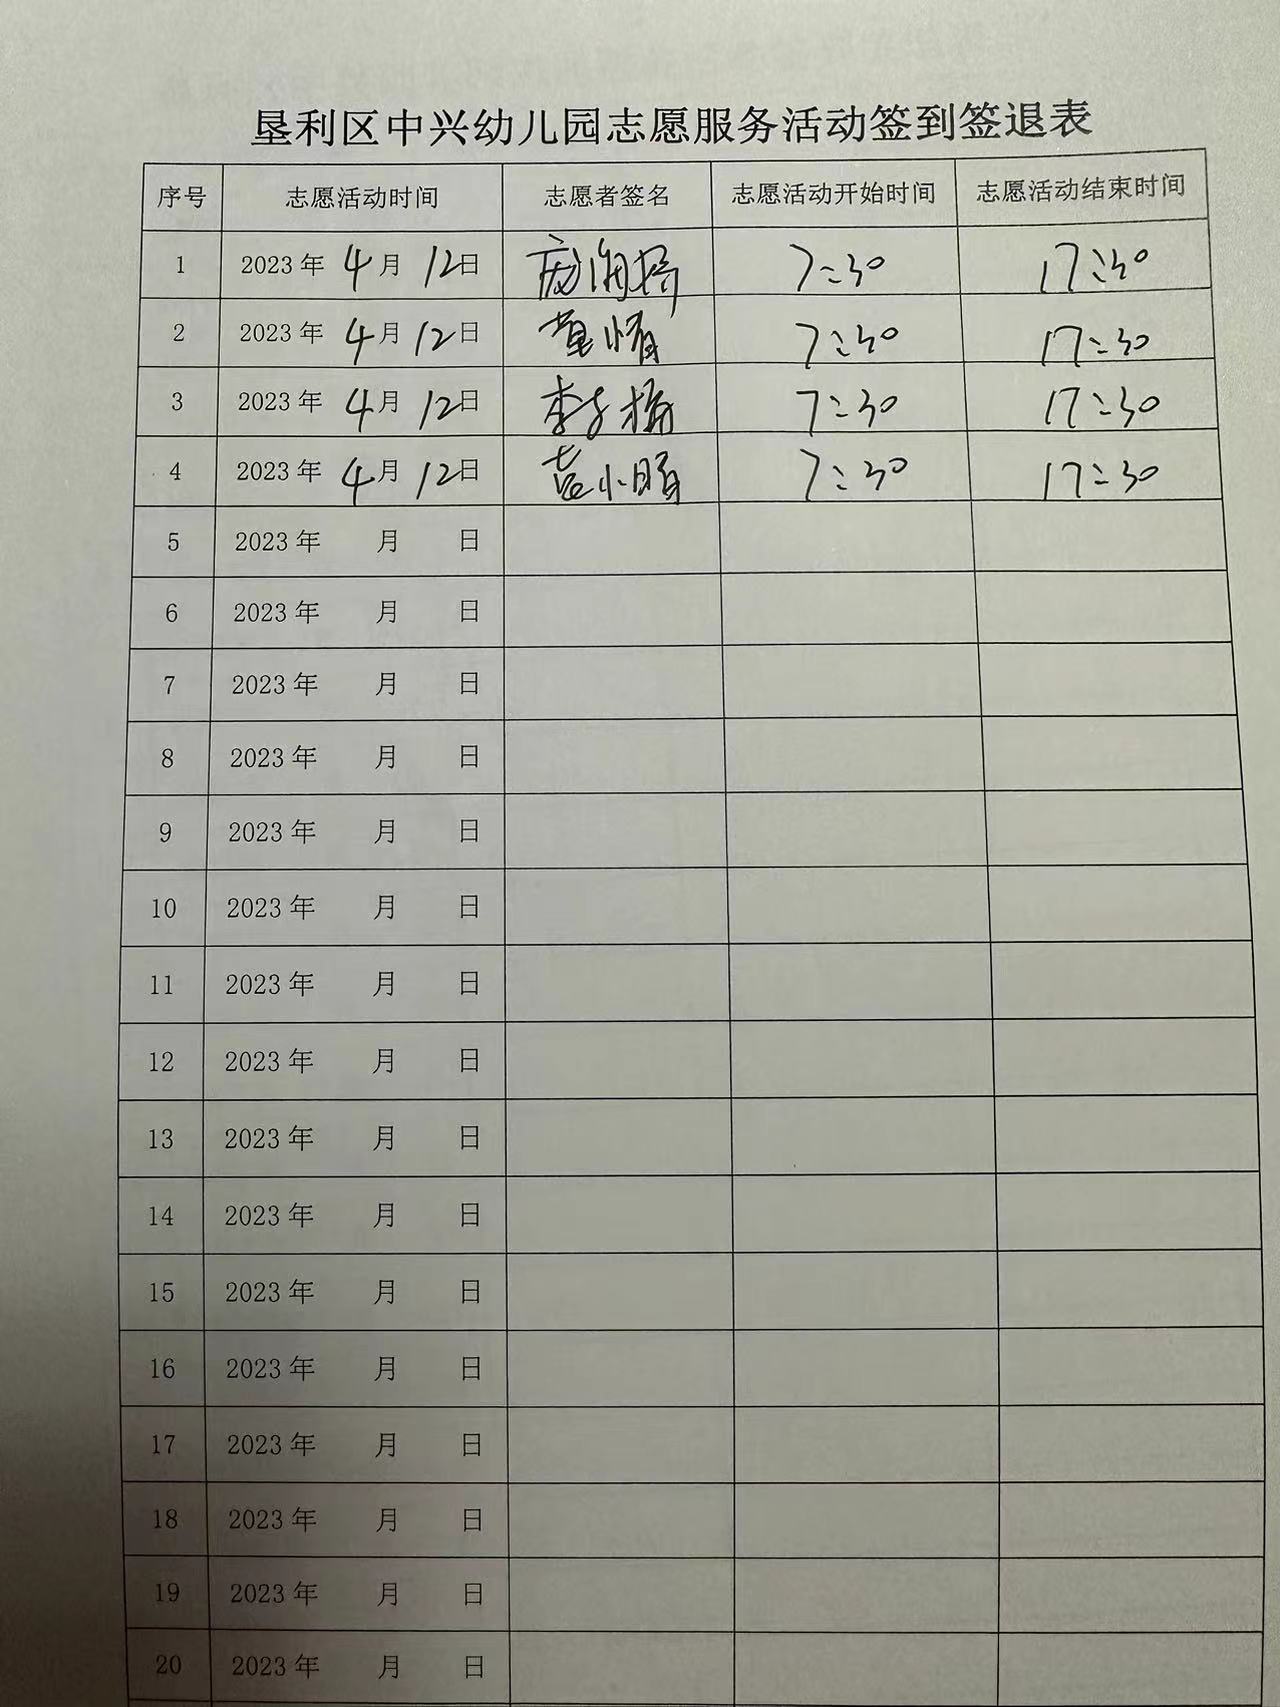 垦利区中兴幼儿园志愿服务活动签到签退表
序号 志愿活动时间 志愿者签名 志愿活动开始时间 志愿活动结束时间
1 2023年 4月 12日 7:30 17:30
2 2023年 4月 12日 董婧 7:30 17:30
3 2023年 4月 12日 李冬梅 7:30 17:30
4 2023年 4月 12日 袁小晴 7:30 17:30
5 2023年 月 日
6 2023年 月 日
7 2023年 月 日
8 2023年 月 日
9 2023年 月 日
10 2023年 月 日
11 2023年 月 日
12 2023年 月 日
13 2023年 月 日
14 2023年 月 日
15 2023年 月 日
16 2023年 月 日
17 2023年 月 日
18 2023年 月 日
19 2023年 月 日
20 2023年 月 日